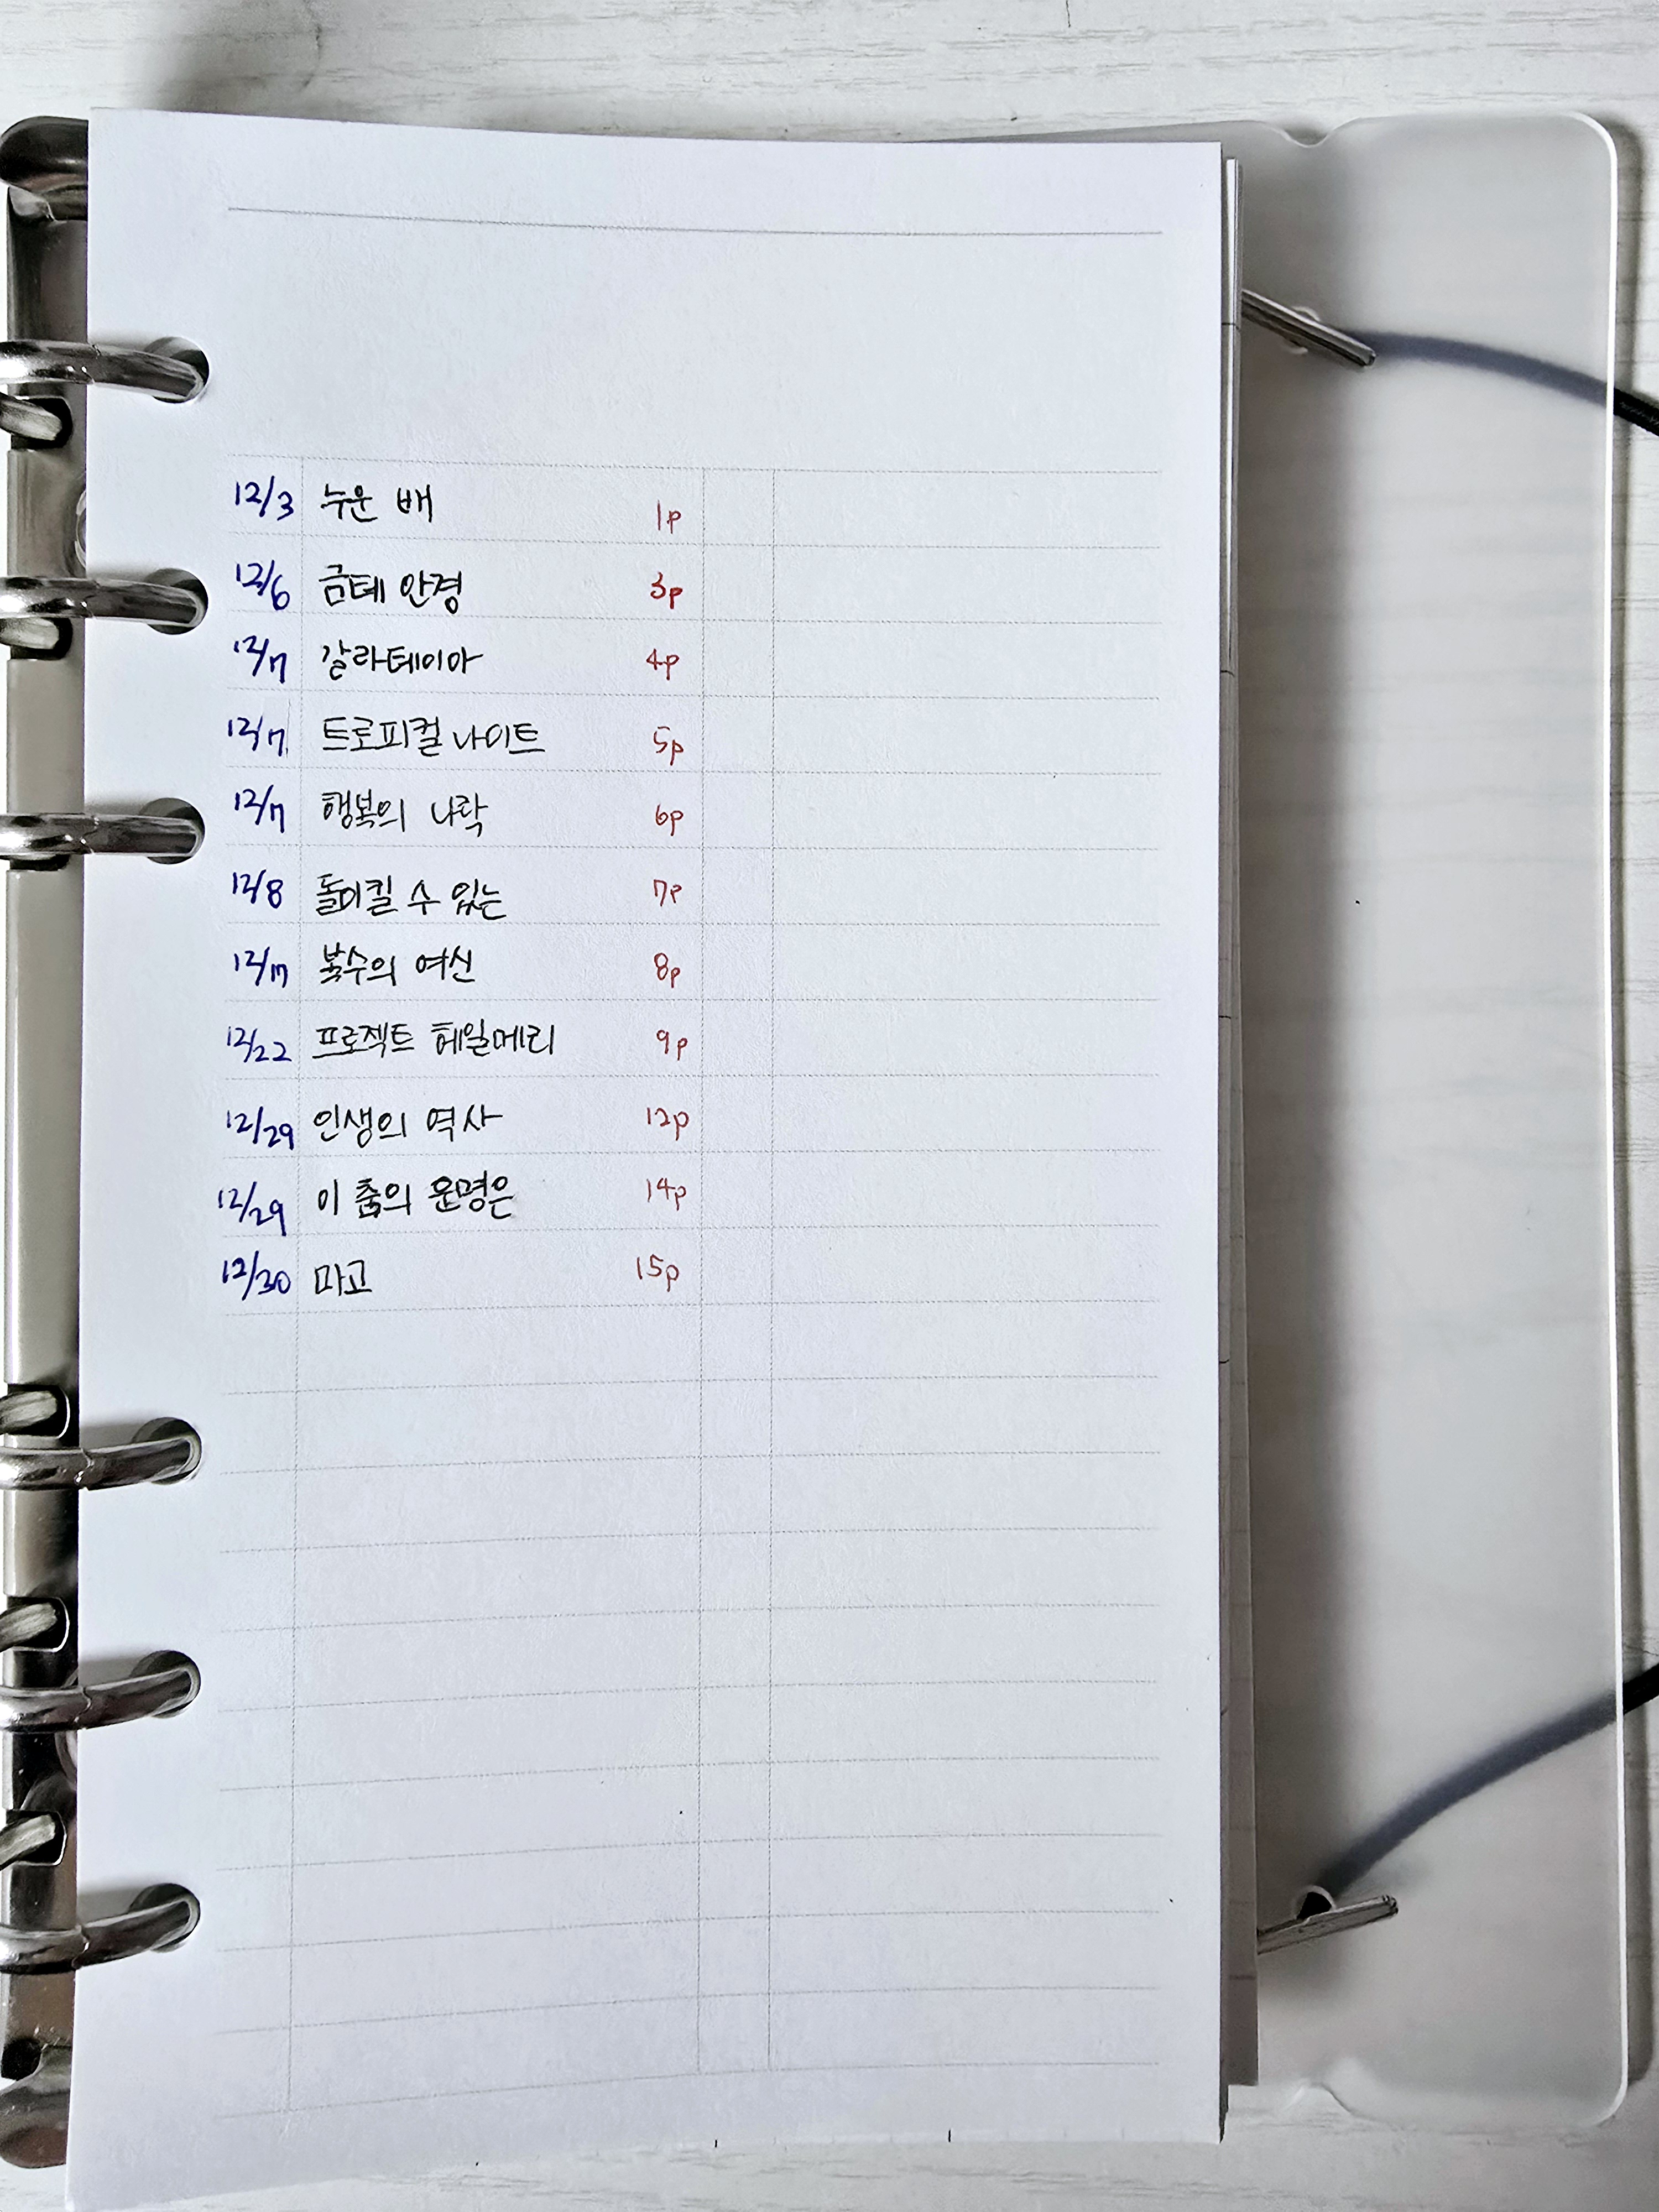 12/3 누운 배 1p
12/6 금테 안경 3p
12/7 갈라테이아 4p
12/7 트로피컬 나이트 5p
12/7 행복의 나락 6p
12/8 돌이킬 수 있는 7p
12/17 복수의 여신 8p
12/22 프로젝트 헤일메리 9p
12/29 인생의 역사 12p
12/29 이 춤의 운명은 14p
12/30 마고 15p